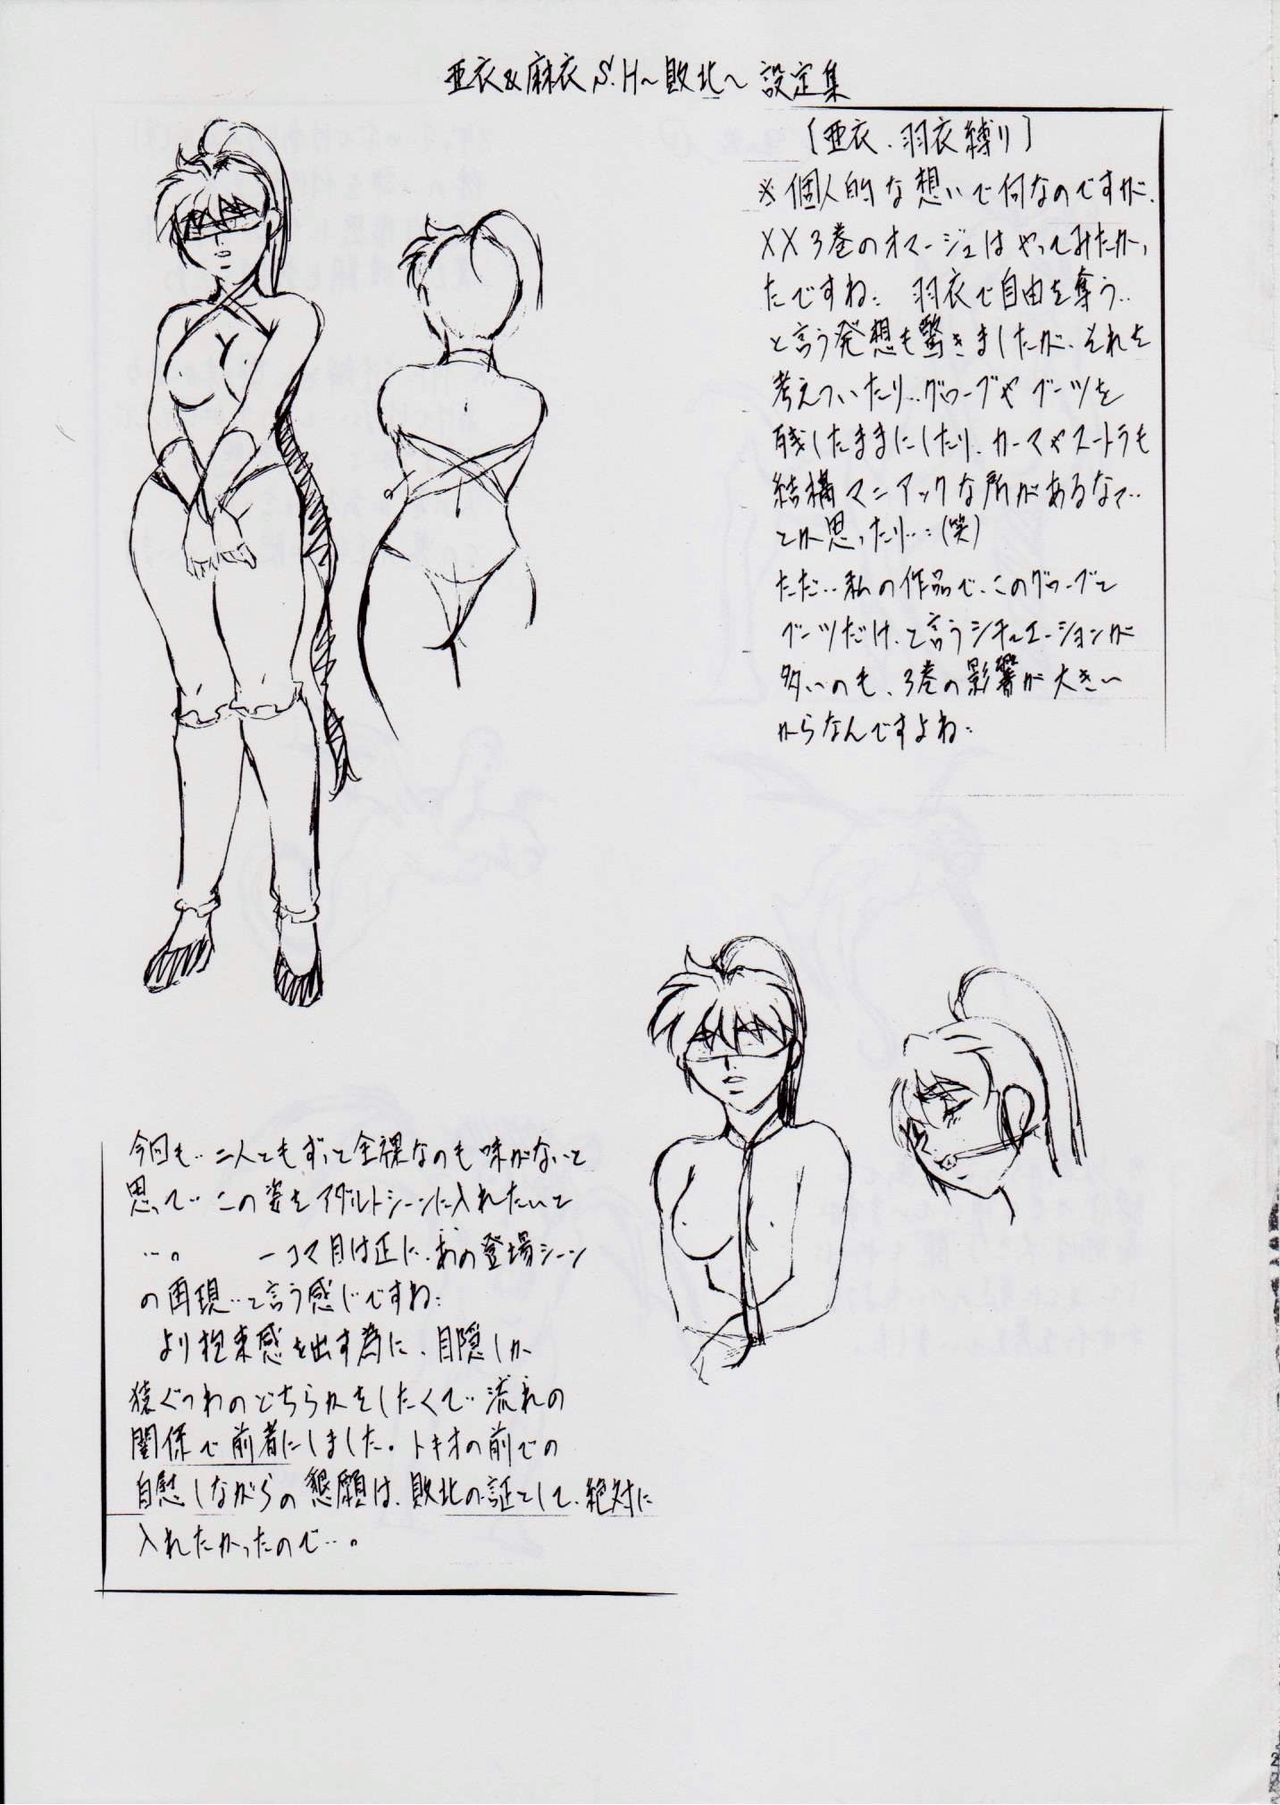 亜衣&麻衣 S.H～敗北～ 設定集
〔亜衣、羽衣縛り〕
※個人的な想いで何なのですが、
XX3巻のオマージュはやってみたかっ
たですね… 羽衣で自由を奪う…
と言う発想も驚きましたが、それを
考えついたり…グローブやブーツを
残したままにしたり、カーマやスートラも
結構マニアックな所があるなって…
とか思ったり…(笑)
ただ…私の作品で、このグローブと
ブーツだけ、と言うシチュエーションが
多いのも、3巻の影響が大きい
からなんですよね…
今回も…二人ともずっと全裸なのも味がないと
思って…この姿をアダルトシーンに入れたいと
…。 一コマ目は正に、あの登場シーン
の再現…と言う感じですね…
より拘束感を出す為に、目隠しか
猿ぐつわのどちらかをしたくて…流れの
関係で前者にしました。トキオの前での
自慰しながらの懇願は、敗北の証として、絶対に
入れたかったので…。